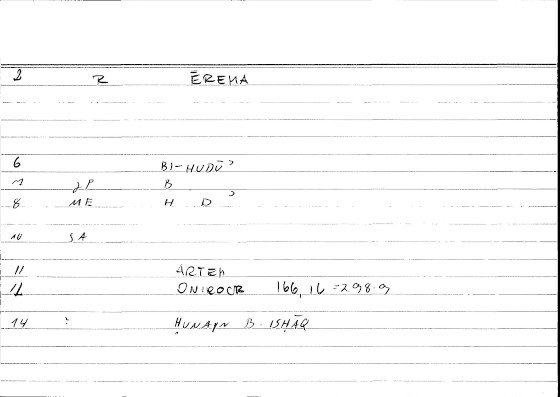 2 R ĒREMA
6 BI-HUDŪʾ
7 JP B
8 ME H Dʾ
10 SA
11 ARTEM
12 ONIROCR 166, 16 = 298.9
14 : ḤUNAYN B. ISḤĀQ